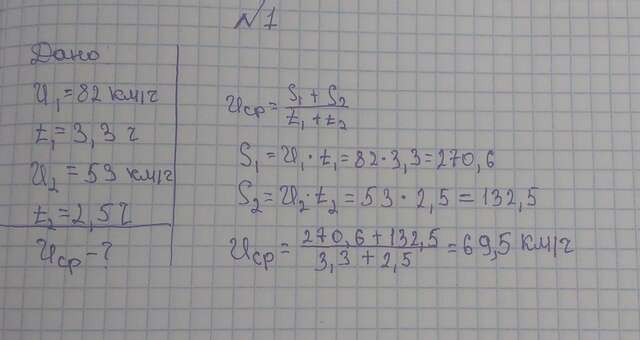 №1
Дано
υ₁=82 км/ч
t₁=3,3 ч
υ₂=53 км/ч
t₂=2,5 ч
υср-?
υср=(S₁+S₂)/(t₁+t₂)
S₁=υ₁·t₁=82·3,3=270,6
S₂=υ₂·t₂=53·2,5=132,5
υср=(270,6+132,5)/(3,3+2,5)=69,5 км/ч